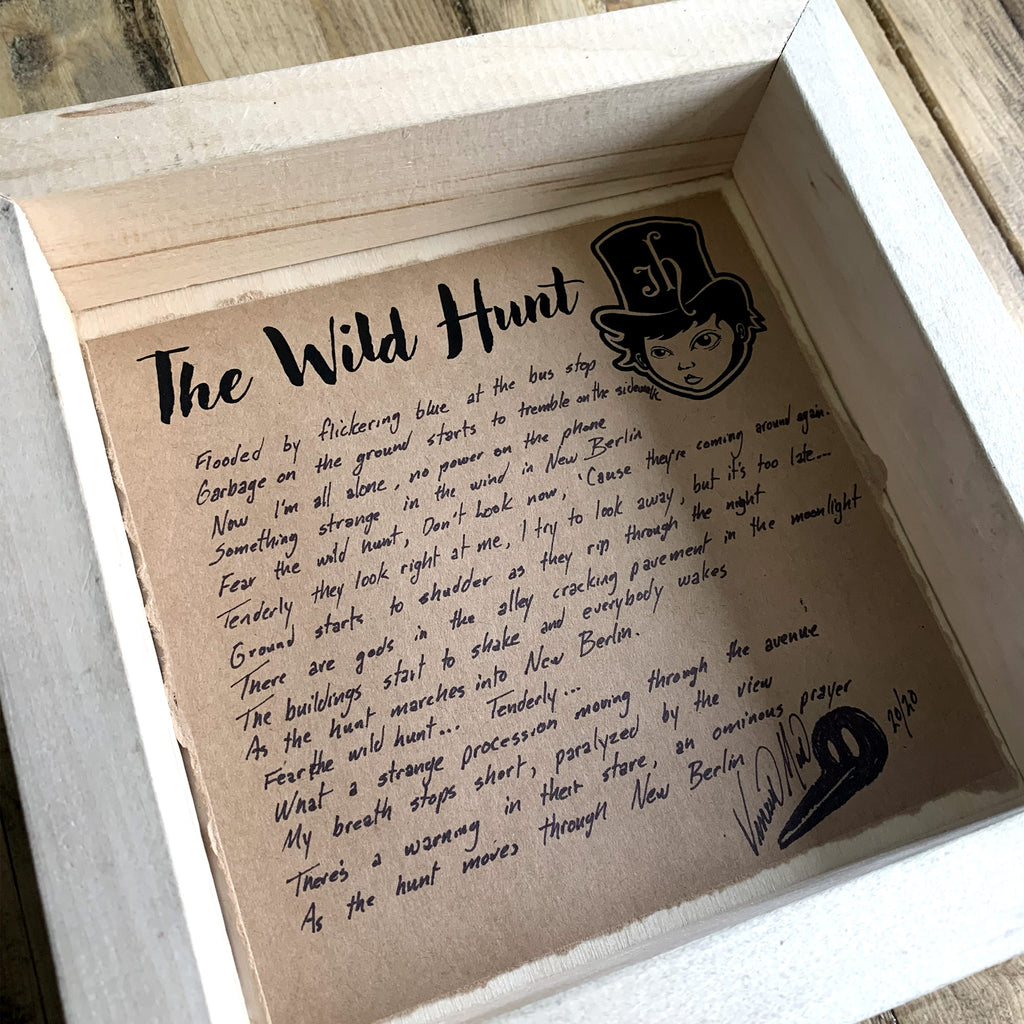 The Wild Hunt
Jh
Flooded by flickering blue at the bus stop
Garbage on the ground starts to tremble on the sidewalk
Now I'm all alone, no power on the phone
Something strange in the wind in New Berlin
Fear the wild hunt, Don't look now, 'Cause they're coming around again.
Tenderly they look right at me, I try to look away, but it's too late...
Ground starts to shudder as they rip through the night
There are gods in the alley cracking pavement in the moonlight
The buildings start to shake and everybody wakes
As the hunt marches into New Berlin.
Fear the wild hunt... Tenderly...
What a strange procession moving through the avenue
My breath stops short, paralyzed by the view
There's a warning in their stare, an ominous prayer
As the hunt moves through New Berlin
20/20